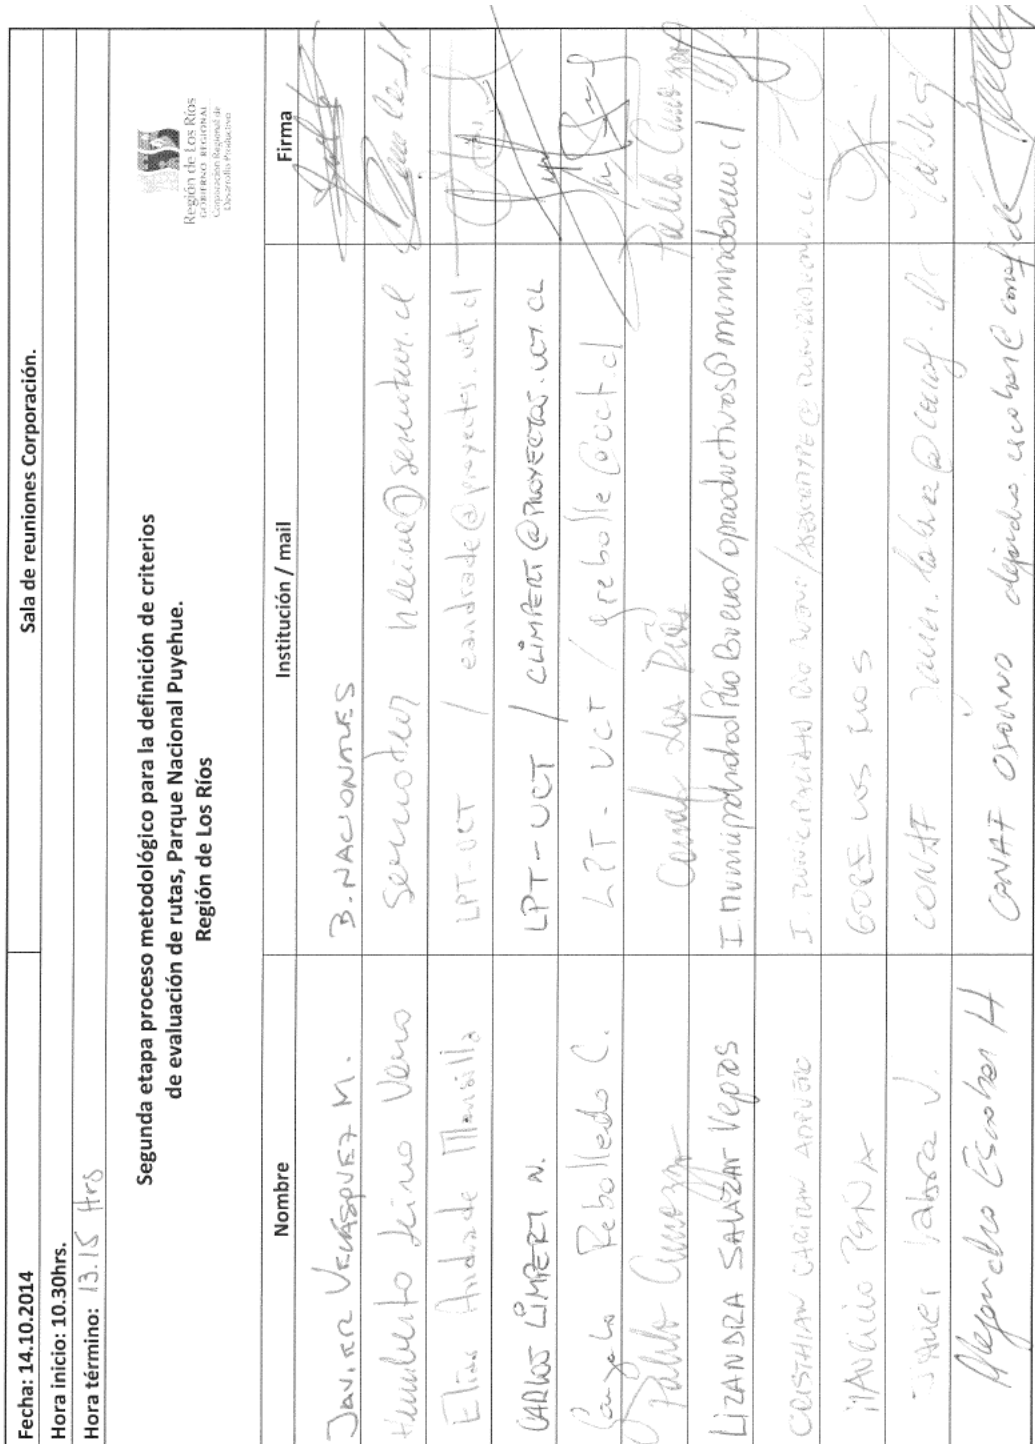 Fecha: 14.10.2014
Sala de reuniones Corporación.
Hora inicio: 10.30hrs.
Hora término: 13.15 Hrs
Segunda etapa proceso metodológico para la definición de criterios
de evaluación de rutas, Parque Nacional Puyehue.
Región de Los Ríos
Región de Los Ríos
GOBIERNO REGIONAL
Corporación Regional de
Desarrollo Productivo
Nombre Institución / mail Firma
JAVIER VELASQUEZ M. B. NACIONALES
Humberto Sernatur @sernatur.cl
Elias Andrade Mansilla LPT-UCT / eandrade@proyectos.uct.cl
CARLOS LIMPERT N. LPT-UCT / CLIMPERT@PROYECTOS.UCT.CL
Gonzalo Rebolledo C. LPT-UCT / grebolle@uct.cl
Pablo Conaf Los Ríos
LIZANDRA SALAZAR I. Municipalidad Río Bueno /
CRISTHIAN I. MUNICIPALIDAD RIO BUENO /
MAURICIO PEÑA GORE LOS RIOS
Javier Labra V. CONAF javier.labra@conaf.cl
Alejandro Escobar H CONAF OSORNO alejandro.escobar@conaf.cl